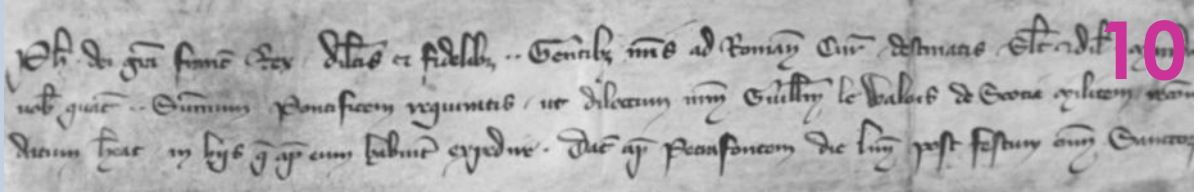 Ph dei gra franc Rex dilcis et fidelibz .. Gentibz nris ad Romam Cur destinatis Slt et dil 10
uob quat .. Summum Pontificem requiratis ut dilectum nrm Guillm le Walois de Scocia militem
datum heat in hiis q ap eum habuit expedire . Dat ap Petrafontem die lun post festum omn Sanctor